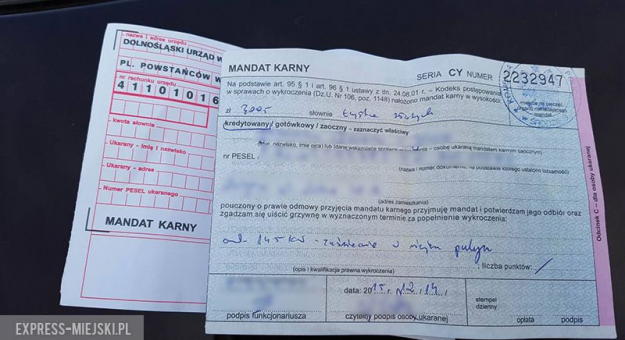 nazwa i adres urzędu
DOLNOŚLĄSKI URZĄD W
PL. POWSTAŃCÓW W
nr rachunku urzędu
41101016
kwota słownie
Ukarany - imię i nazwisko
Ukarany - adres
Numer PESEL ukaranego
MANDAT KARNY
MANDAT KARNY
SERIA CY NUMER 2232947
Na podstawie art. 95 § 1 i art. 96 § 1 ustawy z dn. 24.08.01 r. – Kodeks postępowania
w sprawach o wykroczenia (Dz.U. Nr 106, poz. 1148) nałożono mandat karny w wysokości:
zł słownie złotych
kredytowany/ gotówkowy / zaoczny - zaznaczyć właściwy
nr PESEL
(adres zamieszkania)
pouczony o prawie odmowy przyjęcia mandatu karnego przyjmuję mandat i potwierdzam jego odbiór oraz
zgadzam się uiścić grzywnę w wyznaczonym terminie za popełnienie wykroczenia:
art. 145 KW - w
(opis i kwalifikacja prawna wykroczenia)
liczba punktów:
data: 2015 r. 12 / 14
podpis funkcjonariusza
czytelny podpis osoby ukaranej
stempel
dzienny
opłata
podpis
Odcinek C – dla osoby ukaranej
EXPRESS-MIEJSKI.PL